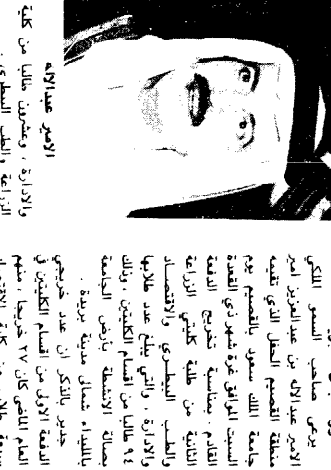 يرعى صاحب السمو الملكي
الامير عبدالاله بن عبدالعزيز امير
منطقة القصيم الحفل الذي تقيمه
جامعة الملك سعود بالقصيم يوم
السبت الموافق غرة شهر ذي القعدة
القادم بمناسبة تخريج الدفعة
الثانية من طلبة كليتي الزراعة
والطب البيطري والاقتصاد
والادارة ، والتي يبلغ عدد طلابها
٩٤ طالبا من اقسام الكليتين ، وذلك
بصالة الانشطة بأرض الجامعة
بالمليداء شمالي مدينة بريدة .
جدير بالذكر ان عدد خريجي
الدفعة الاولى من اقسام الكليتين في
العام الماضي كان ٢٧ خريجا ، منهم
الامير عبدالاله
والادارة ، وعشرون طالبا من كلية
الزراعة والطب البيطري .